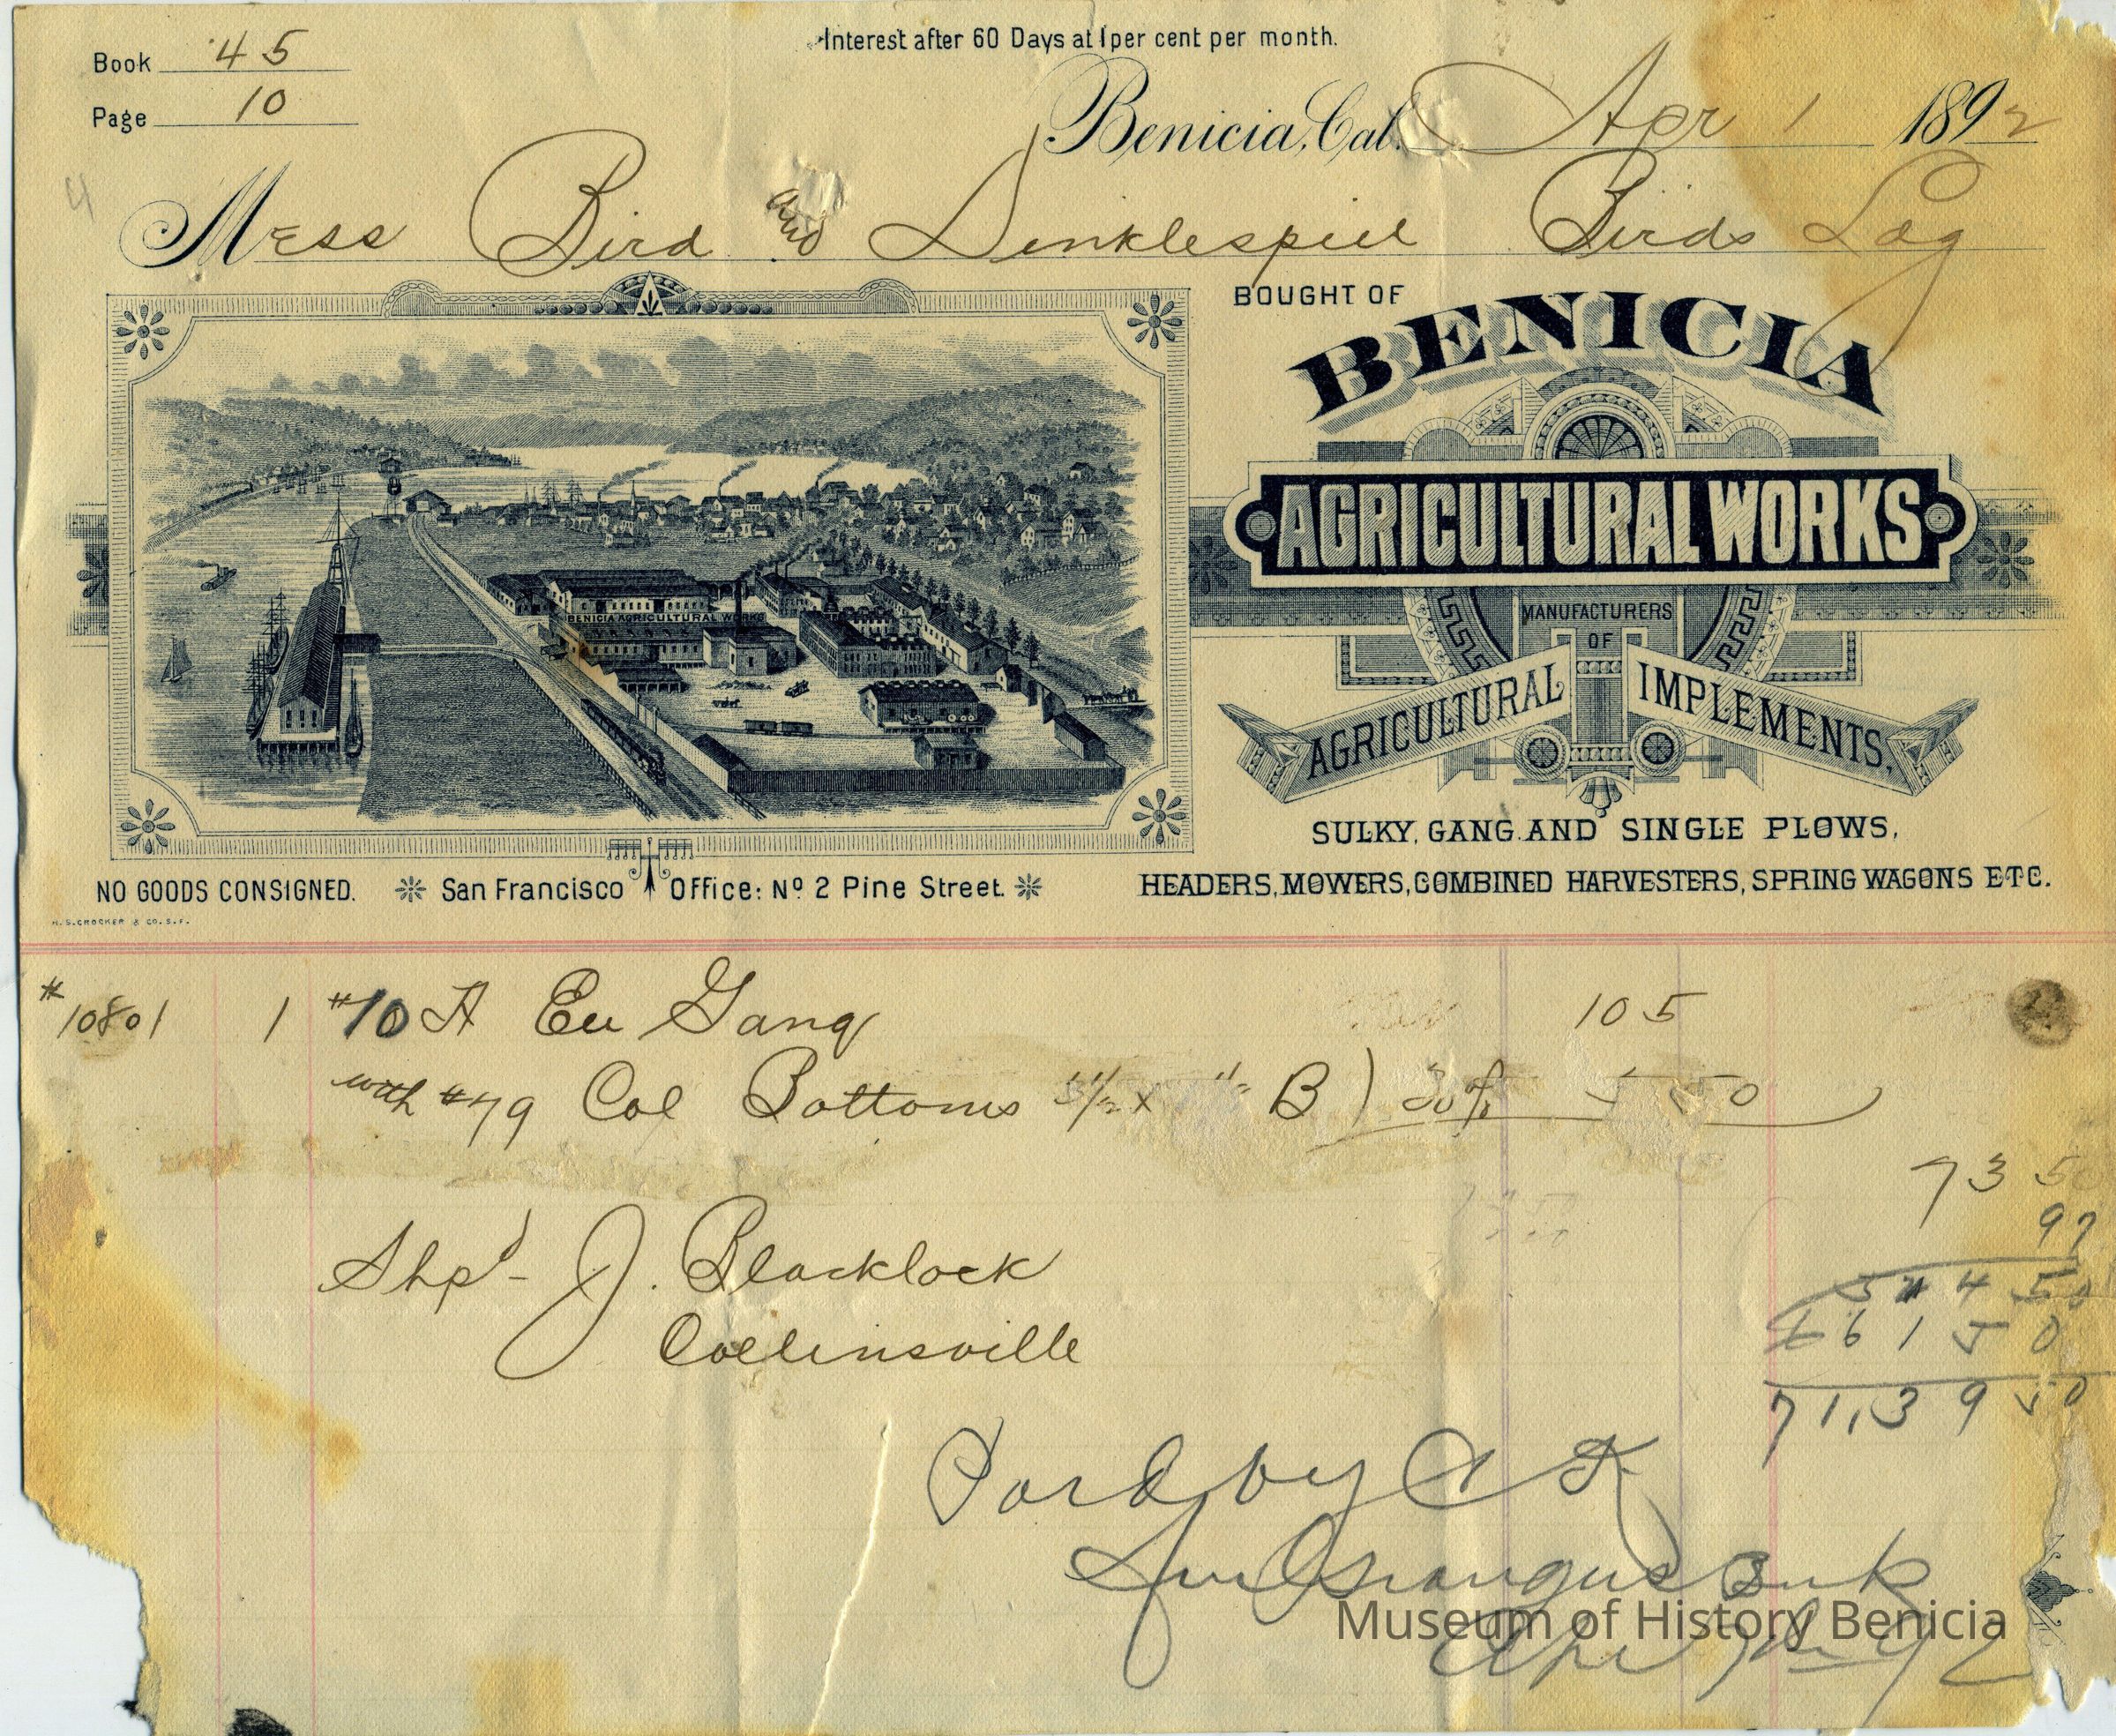 Interest after 60 Days at 1 per cent per month.
Book 45
Page 10
Benicia, Cal. Apr 1 1892
4
Mess Bird and Dinklespiel Birds Ldg
BOUGHT OF
BENICIA
AGRICULTURAL WORKS
MANUFACTURERS
OF
AGRICULTURAL IMPLEMENTS,
SULKY, GANG AND SINGLE PLOWS,
HEADERS, MOWERS, COMBINED HARVESTERS, SPRING WAGONS ETC.
BENICIA AGRICULTURAL WORKS
NO GOODS CONSIGNED. San Francisco Office: No 2 Pine Street.
H.S. CROCKER & CO. S.F.
#10801 1 #10 A Eu Gang 105
with #79 Col Bottoms B) 30% 50
73 50
97
4 50
61 50
71,39 50
Shpd - J. Blacklock
Collinsville
by
Museum of History Benicia